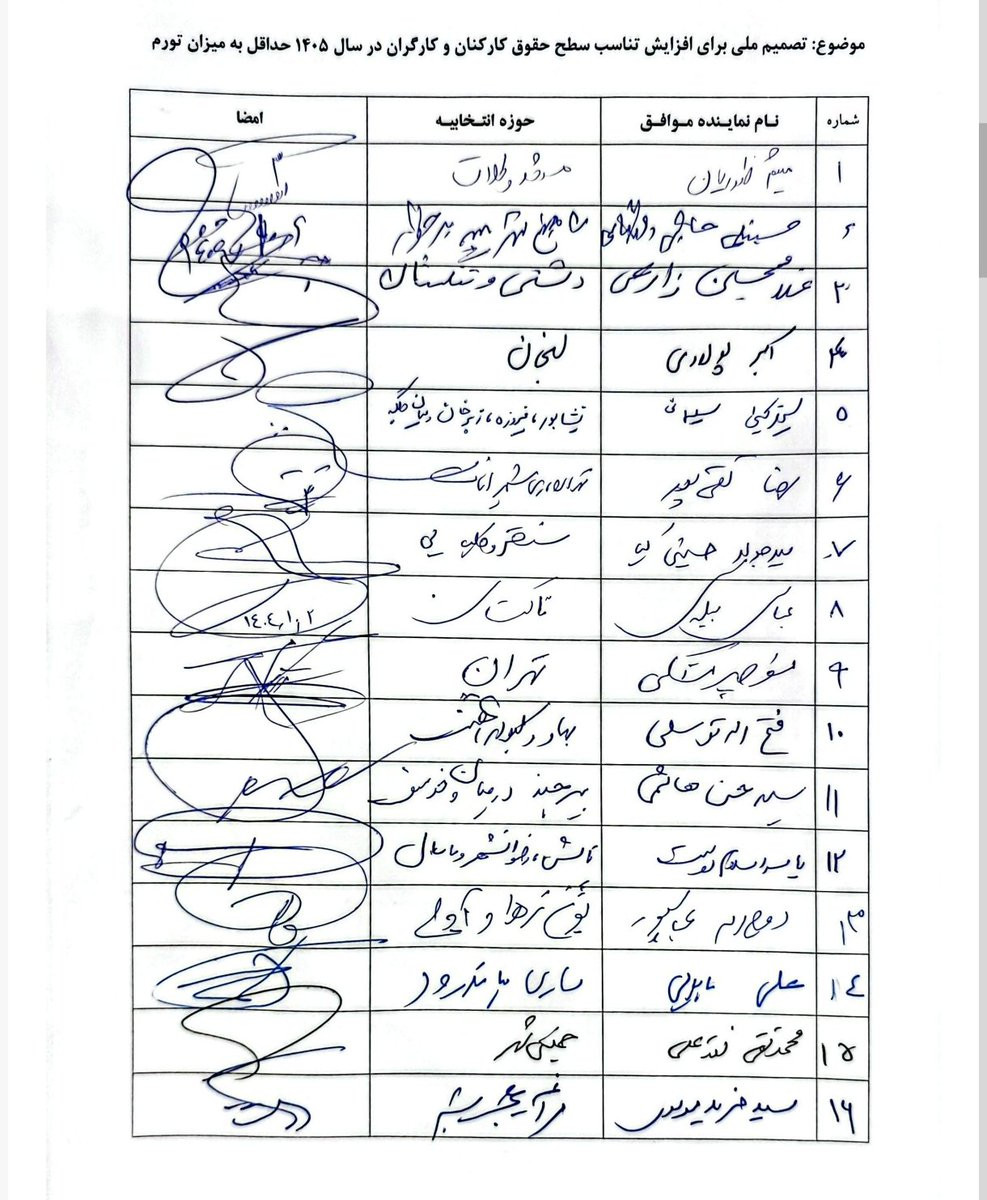 موضوع: تصمیم ملی برای افزایش تناسب سطح حقوق کارکنان و کارگران در سال ۱۴۰۵ حداقل به میزان تورم
شماره نام نماینده موافق حوزه انتخابیه امضا
۱ میثم ظهوریان مشهد و کلات
۲ حسینعلی حاجی دلیگانی شاهین شهر میمه برخوار
۳ غلامحسین زارعی دشتی و تنگستان
۴ اکبر پولادی لنجان
۵ سلیمانی نیشابور، فیروزه، زبرخان و میان جلگه
۶ رضا تقی پور تهران، ری، شمیرانات
۷ سید جواد حسینی کیا سنقر و کلیایی
۸ عباس بیگدلی تاکستان ۱۴۰۴/۱۰/۲
۹ تهران
۱۰ فتح اله توسلی بهار و کبودرآهنگ
۱۱ سید حسن هاشمی بیرجند درمیان و خوسف
۱۲ تالش، رضوانشهر و ماسال
۱۳ روح اله عباسپور بوئین زهرا و آوج
۱۴ علی بابایی ساری و میاندرود
۱۵ محمدتقی نقدعلی خمینی شهر
۱۶ سید فرید موسوی مراغه و عجب شیر